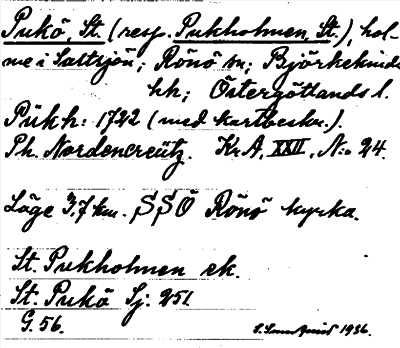 Pukö, St. (resp. Pukholmen, St.), hol-
me i Saltsjön; Rönö sn; Björkekinds
hh; Östergötlands l.
Pukh: 1722 (med kartbeskr.).
Ph. Nordencreütz. Kr.A, XXII, No 24.
Läge 3,7 km. SSÖ Rönö kyrka.
St. Pukholmen ek.
St. Pukö Sj: 251.
G. 56.
1936.